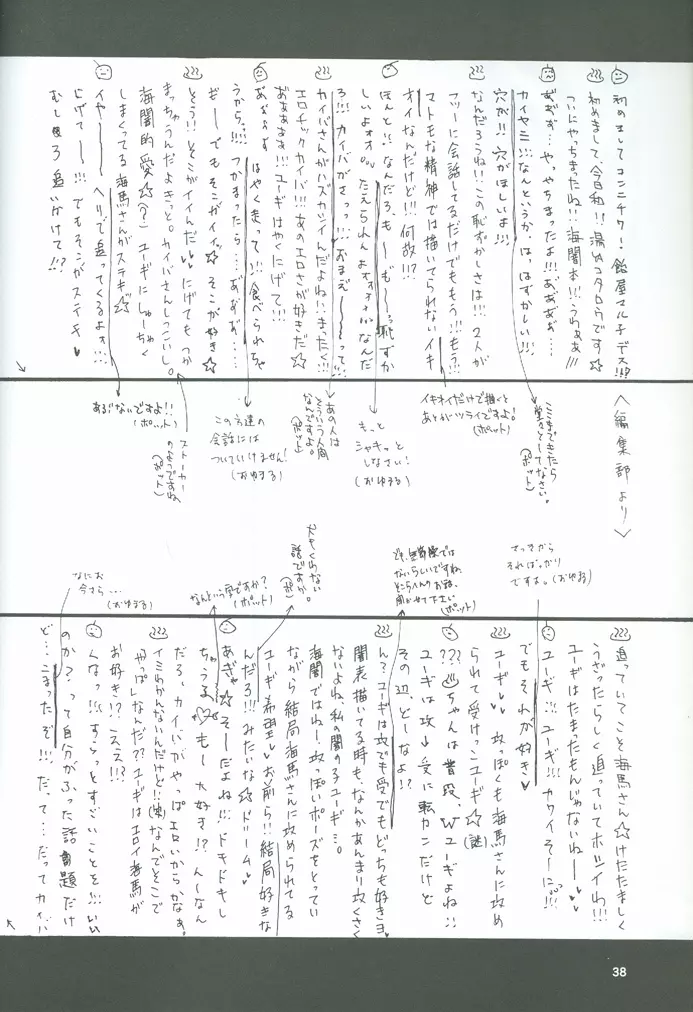 初めましてコンニチワ! 飴屋マルチデス!!?
初めまして、今日和!! 湯ノコタロウです☆
ついにやっちまったね!!! 海闇本!!! うわぁぁ///
あ゛あ゛ぁ…やっやちまったよ!!! あ゛あ゛ぁぁ…
カイヤミ!!! なんというか、はっはずかしい!!!
穴が!!! 穴がほしいよ!!!
なんだろうね!!! この恥ずかしさは!!! 2人が
フツーに会話してるだけでももう!!! もう!!!
マトモな精神では描いてられないイキ
オイなんだけど!!! 何故!!?
ほんと!!! なんだろ、もー もー っ恥ずか
しいよォォ たえられんよォォ なんだ
ろ!!! カイバがさっっ!!! おまえ って!!!
カイバさんがハズカシイんだよね!!! まったく!!!
エロチックカイバ!!! あのエロさが好きだ☆
あ゛ぁぁぁぁ!!! ユーギはやくにげて!!!
はやく走って!!! 食べられちゃ
うから…!!! つかまったら…あ゛あ゛ぁ…
ぎー でもそこがイイ☆ そこが好き☆
とう!! そこがイイんだ にげてもつか
まっちゃうんだよきっと。カイバさんしつこいし。
海闇的愛☆(?) ユーギにしゅーちゃく
しまくってる海馬さんがステキ☆
イヤー ヘリで追ってくるよォ!!!
にげてー!!! でもそこがステキ♥
むしろ追いかけて!!?
〈編集部より〉
ここまできたら
堂々としてなさい。
(ポット)
イキオイだけで描くと
あとがツライですよ!
(ポット)
もっと
シャキッと
しなさい!
(おゆまる)
あの人は
そういう人間
なんですよ。
(ポット)
この方達の
会話には
ついていけません!
(おゆまる)
ストーカー
のようですね
(ポット)
あぶないですよ!!
(ポット)
さっきから
そればっかり
ですよ。(おゆまる)
でも、無節操では
ないらしいですね。
そこら人のお話、
聞かせて下さい
(ポット)
スキくわない
話ですか。
(ポ)
なんという字ですか?
(ポット)
なにお
今さら…
(おゆまる)
追っていてこと海馬さん☆けたたましく
うざったらしく追っていてホシイわ!!!
ユーギはたまったもんじゃないねー
ユーギ!!! ユーギ!!! カワイそーに…!!!
でもそれが好き♥
ユーギ♥♥ 攻っぽくも海馬さんに攻め
られて受けっこユーギ☆(謎)
??? ちゃんは普段、Wユーギよね!!
ユーギは攻→受に転カンだけど
その辺、どーなよ!?
ん? ユーギは攻でも受でもどっちも好きヨ♥
闇表描いてる時も、なんかあんまり攻くさく
ないよね、私の闇の子ユーギ…。
海闇ではねー攻っぽいポーズをとってい
ながら結局海馬さんに攻められてる
ユーギ希望♥ お前ら!! 結局好きな
んだろ!!! みたいな☆ドリーム♥
あぎゃ☆ そーだよね!!! ドキドキし
ちゃうう もー大好き!? んーなん
だろ、カイバがやっぱエロいからかなぁ。
イミわかんないんだけど!!(笑) なんでそこで
やっぱしなんだ?? ユーギはエロイ海馬が
お好き!? ええ!!?
くなっ!!! すらっとすごいことを!!! いい
のか? って自分がふった話題だけ
ど…こまったぞ!!! だって…だってカイバ
38